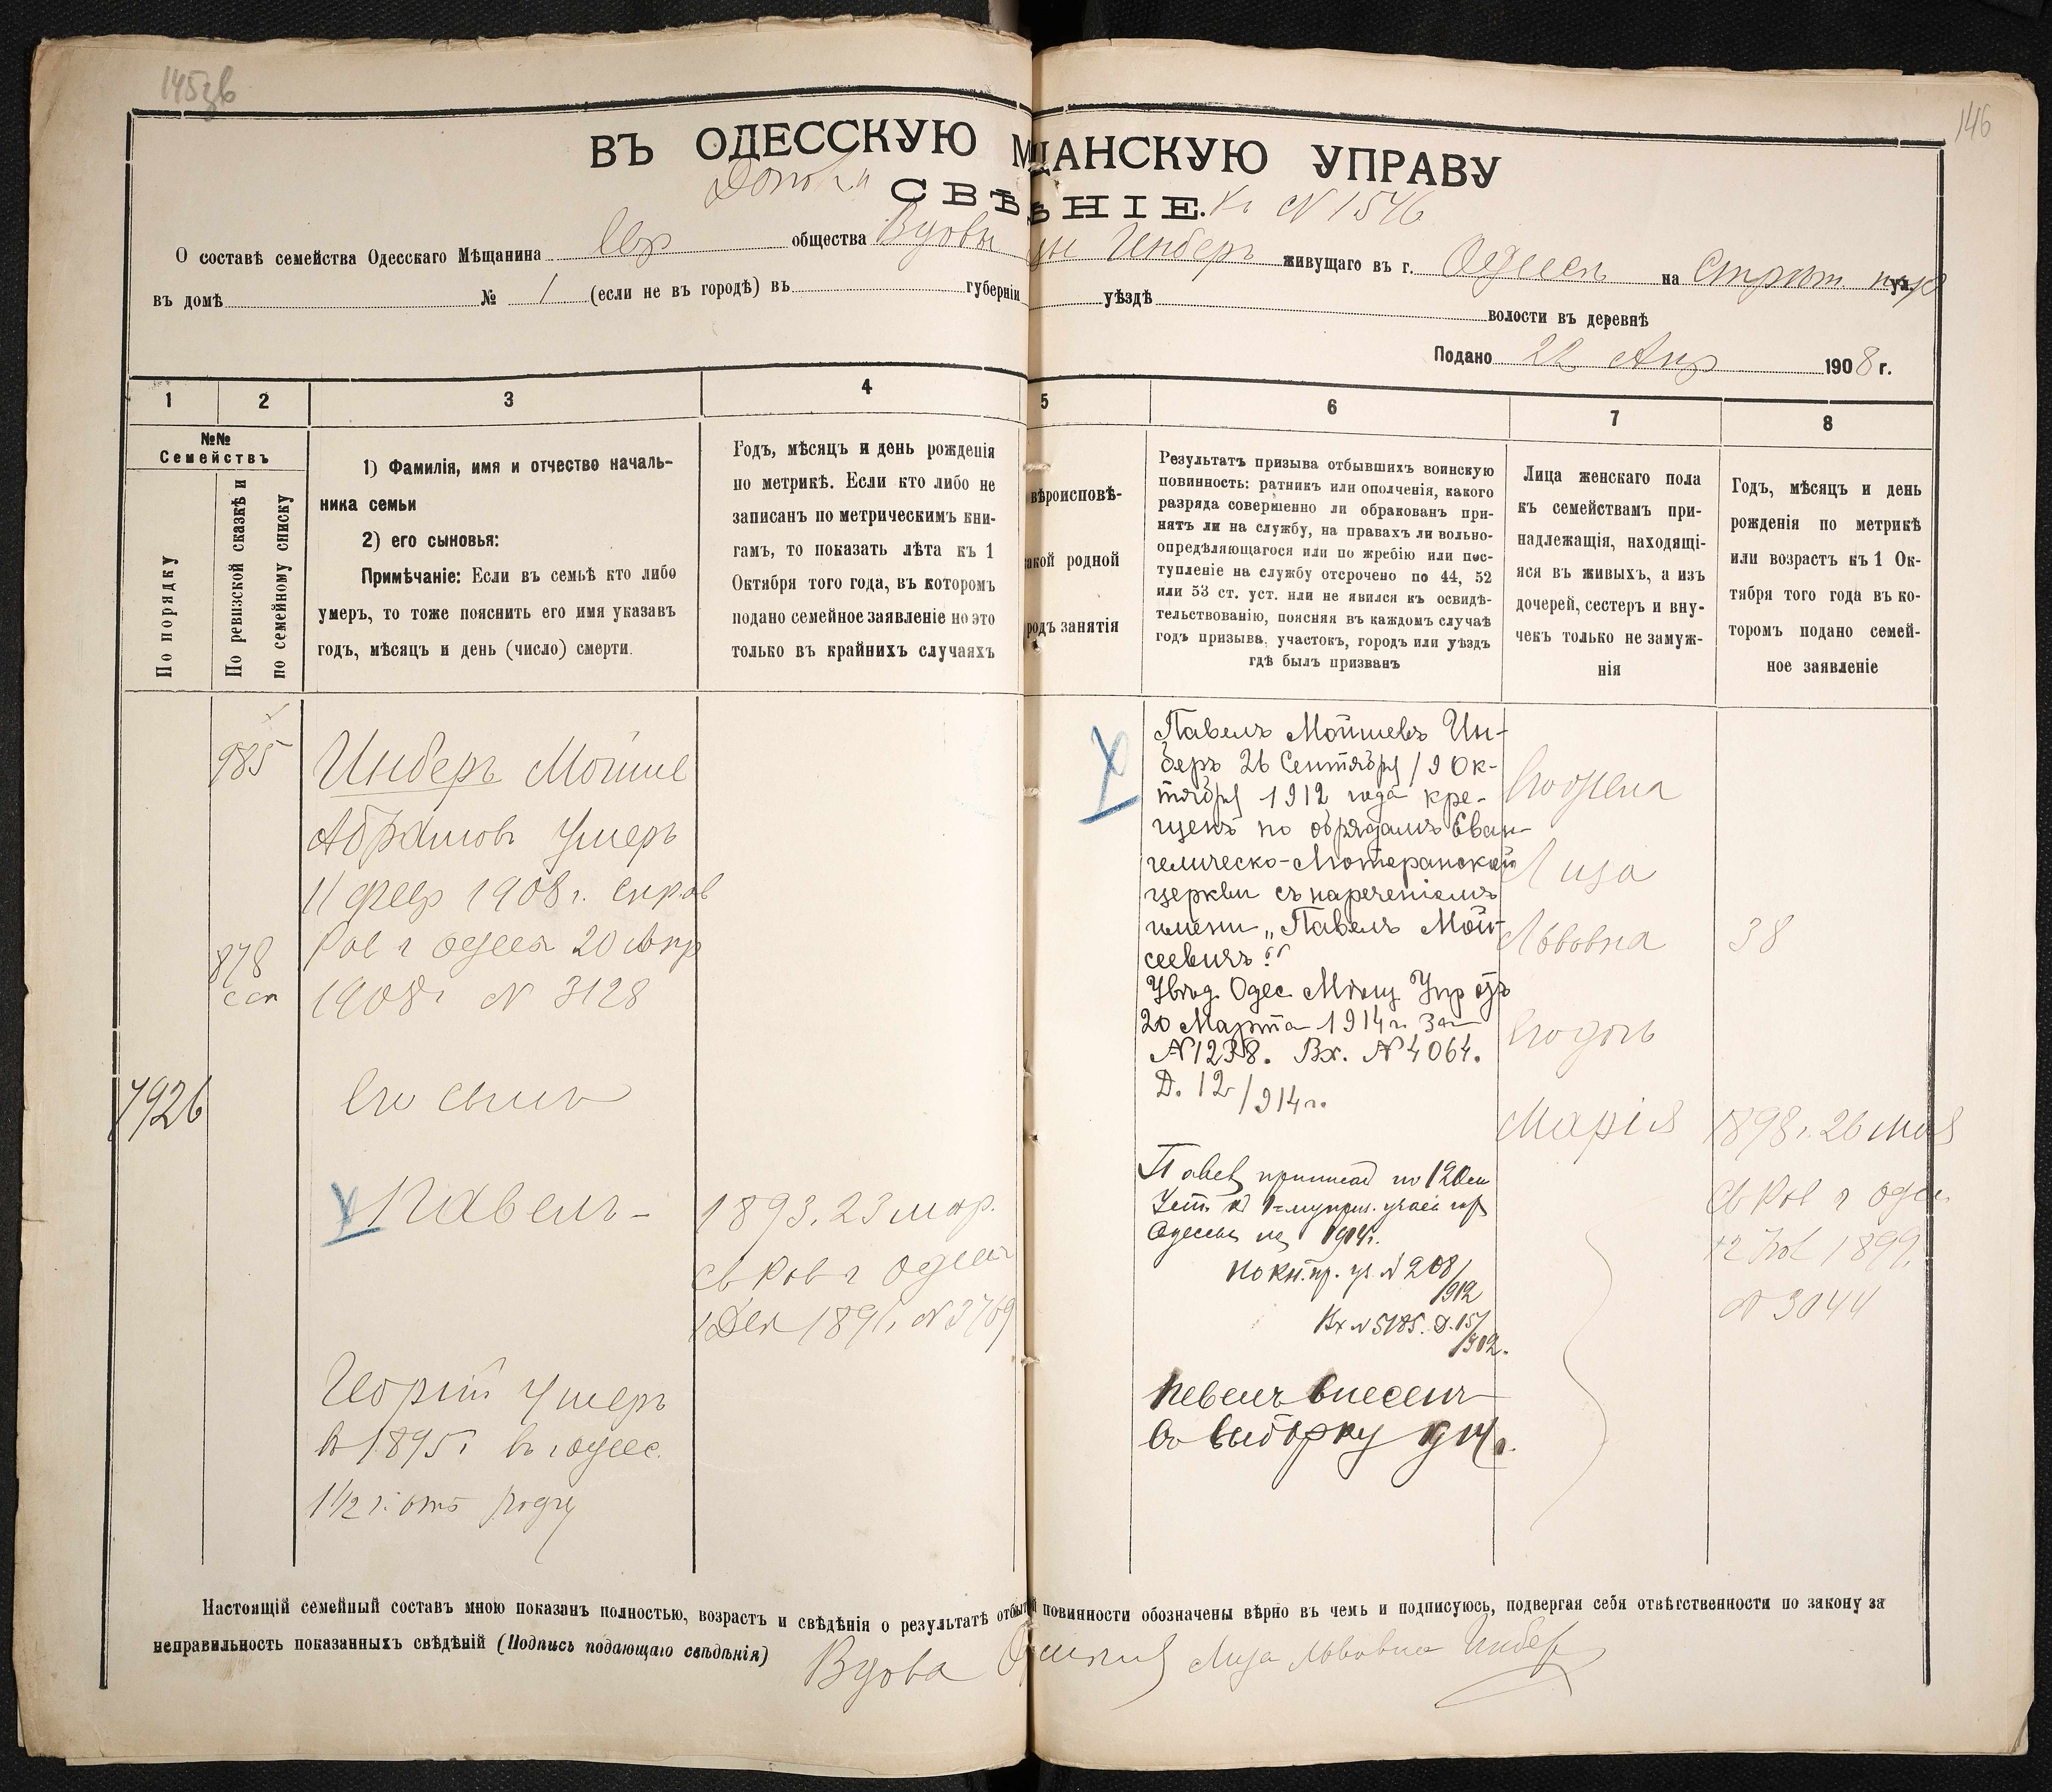 146
ВЪ ОДЕССКУЮ М ЩАНСКУЮ УПРАВУ
СВѢ НІЕ.
№ 1546
О составѣ семейства Одесскаго Мѣщанина Евр общества Вдовы Инберъ живущаго въ г. Одессѣ на ул.
въ домѣ № 1 (если не въ городѣ) въ губерніи уѣздѣ волости въ деревнѣ
Подано 22 Апр 1908 г.
1 2 3 4 5 6 7 8
№№
Семействъ
По порядку
По ревизской сказкѣ и
по семейному списку
1) Фамилія, имя и отчество началь-
ника семьи
2) его сыновья:
Примѣчаніе: Если въ семьѣ кто либо
умеръ, то тоже пояснить его имя указавъ
годъ, мѣсяцъ и день (число) смерти.
Годъ, мѣсяцъ и день рожденія
по метрикѣ. Если кто либо не
записанъ по метрическимъ кни-
гамъ, то показать лѣта къ 1
Октября того года, въ которомъ
подано семейное заявленіе но это
только въ крайнихъ случаяхъ
вѣроисповѣ-
акой родной
родъ занятія
Результатъ призыва отбывшихъ воинскую
повинность: ратникъ или ополченія, какого
разряда совершенно ли обракованъ при-
нятъ ли на службу, на правахъ ли вольно-
опредѣляющагося или по жребію или пос-
тупленіе на службу отсрочено по 44, 52
или 53 ст. уст. или не явился къ освидѣ-
тельствованію, поясняя въ каждомъ случаѣ
годъ призыва, участокъ, городъ или уѣздъ
гдѣ былъ призванъ
Лица женскаго пола
къ семействамъ при-
надлежащія, находящі-
яся въ живыхъ, а изъ
дочерей, сестеръ и вну-
чекъ только не замуж-
нія
Годъ, мѣсяцъ и день
рожденія по метрикѣ
или возрастъ къ 1 Ок-
тября того года въ ко-
торомъ подано семей-
ное заявленіе
985
Инберъ Мойше
Абрамовъ умеръ
11 февр 1908 г. справ
Рав г Одессы 20 Апр
1908 г № 3128
878
7926
Его сынъ
Павелъ
1893. 23 мар.
Св Рав г Одессы
Дек 189
Георгій умеръ
въ 1895 г въ г Одес.
1½ г. отъ роду
Павелъ Мойшевъ Ин-
беръ 26 Сентября / 9 Ок-
тября 1912 года кре-
щенъ по обрядамъ Еван-
гелическо-Лютеранской
церкви съ нареченіемъ
имени „Павелъ Мои-
сеевичъ“
Увѣд. Одес. Мѣщ. Упр отъ
20 Марта 1914 г. за
№ 1238. Вх. № 4064.
Д. 12/914 г.
Павел приписан по 120 ст
Уст.
Одессы на 1914 г.
По кн. пр. уч. № 208/
1912
Вх № 5185. Д. 157/
Павелъ внесенъ
въ выборку 1914 г.
Его жена
Лиза
Львовна 38
Его дочь
Марія 1898 г. 26 мая
Св Рав г Одес.
12 Ноя 1899 г.
№ 3044
Настоящій семейный составъ мною показанъ полностью, возрастъ и свѣдѣнія о результатѣ отбытой повинности обозначены вѣрно въ чемъ и подписуюсь, подвергая себя отвѣтственности по закону за
неправильность показанныхъ свѣдѣній (Подпись подающаго свѣдѣнія) Вдова Лиза Львовна Инбер